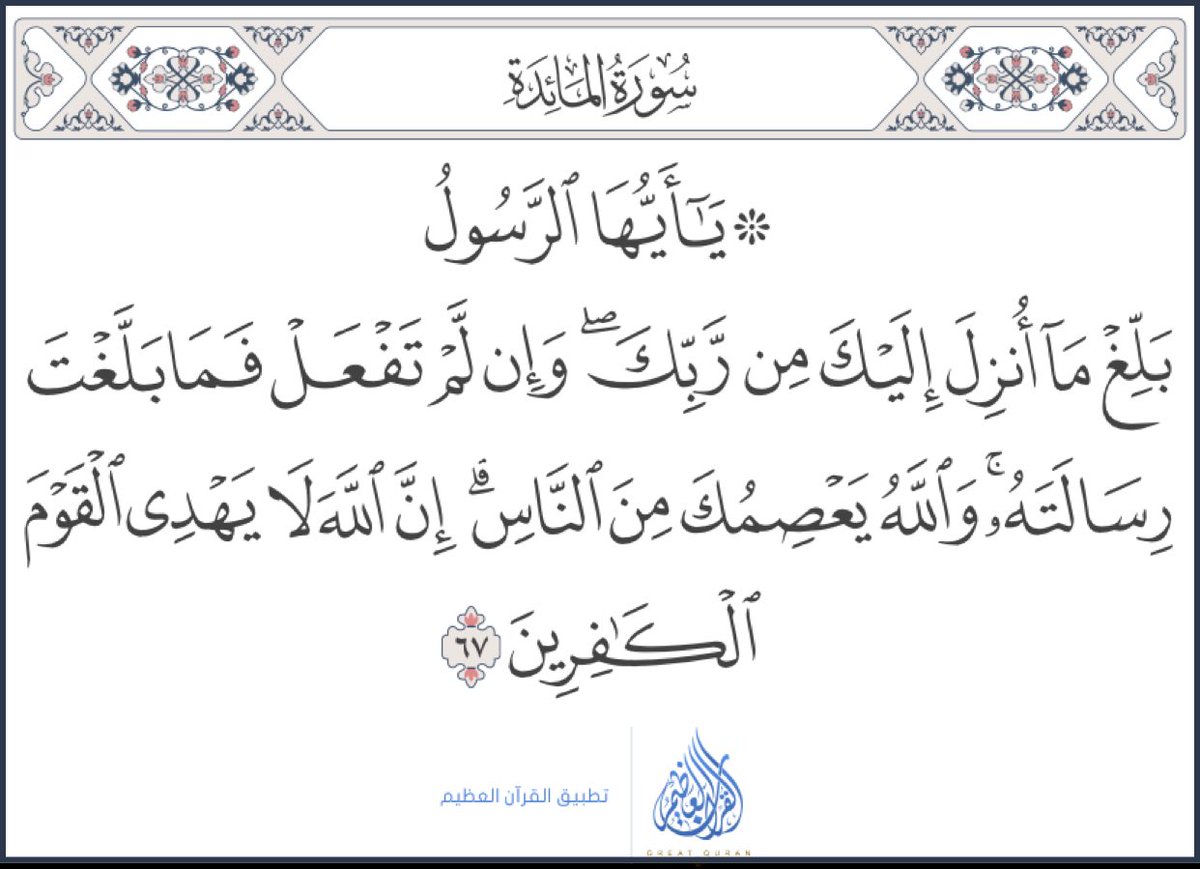 سُورَةُ المَائِدَةِ
۞ يَـٰٓأَيُّهَا ٱلرَّسُولُ
بَلِّغۡ مَآ أُنزِلَ إِلَيۡكَ مِن رَّبِّكَۖ وَإِن لَّمۡ تَفۡعَلۡ فَمَا بَلَّغۡتَ
رِسَالَتَهُۥۚ وَٱللَّهُ يَعۡصِمُكَ مِنَ ٱلنَّاسِۗ إِنَّ ٱللَّهَ لَا يَهۡدِى ٱلۡقَوۡمَ
ٱلۡكَـٰفِرِينَ ٦٧
تطبيق القرآن العظيم
القرآن العظيم
GREAT QURAN